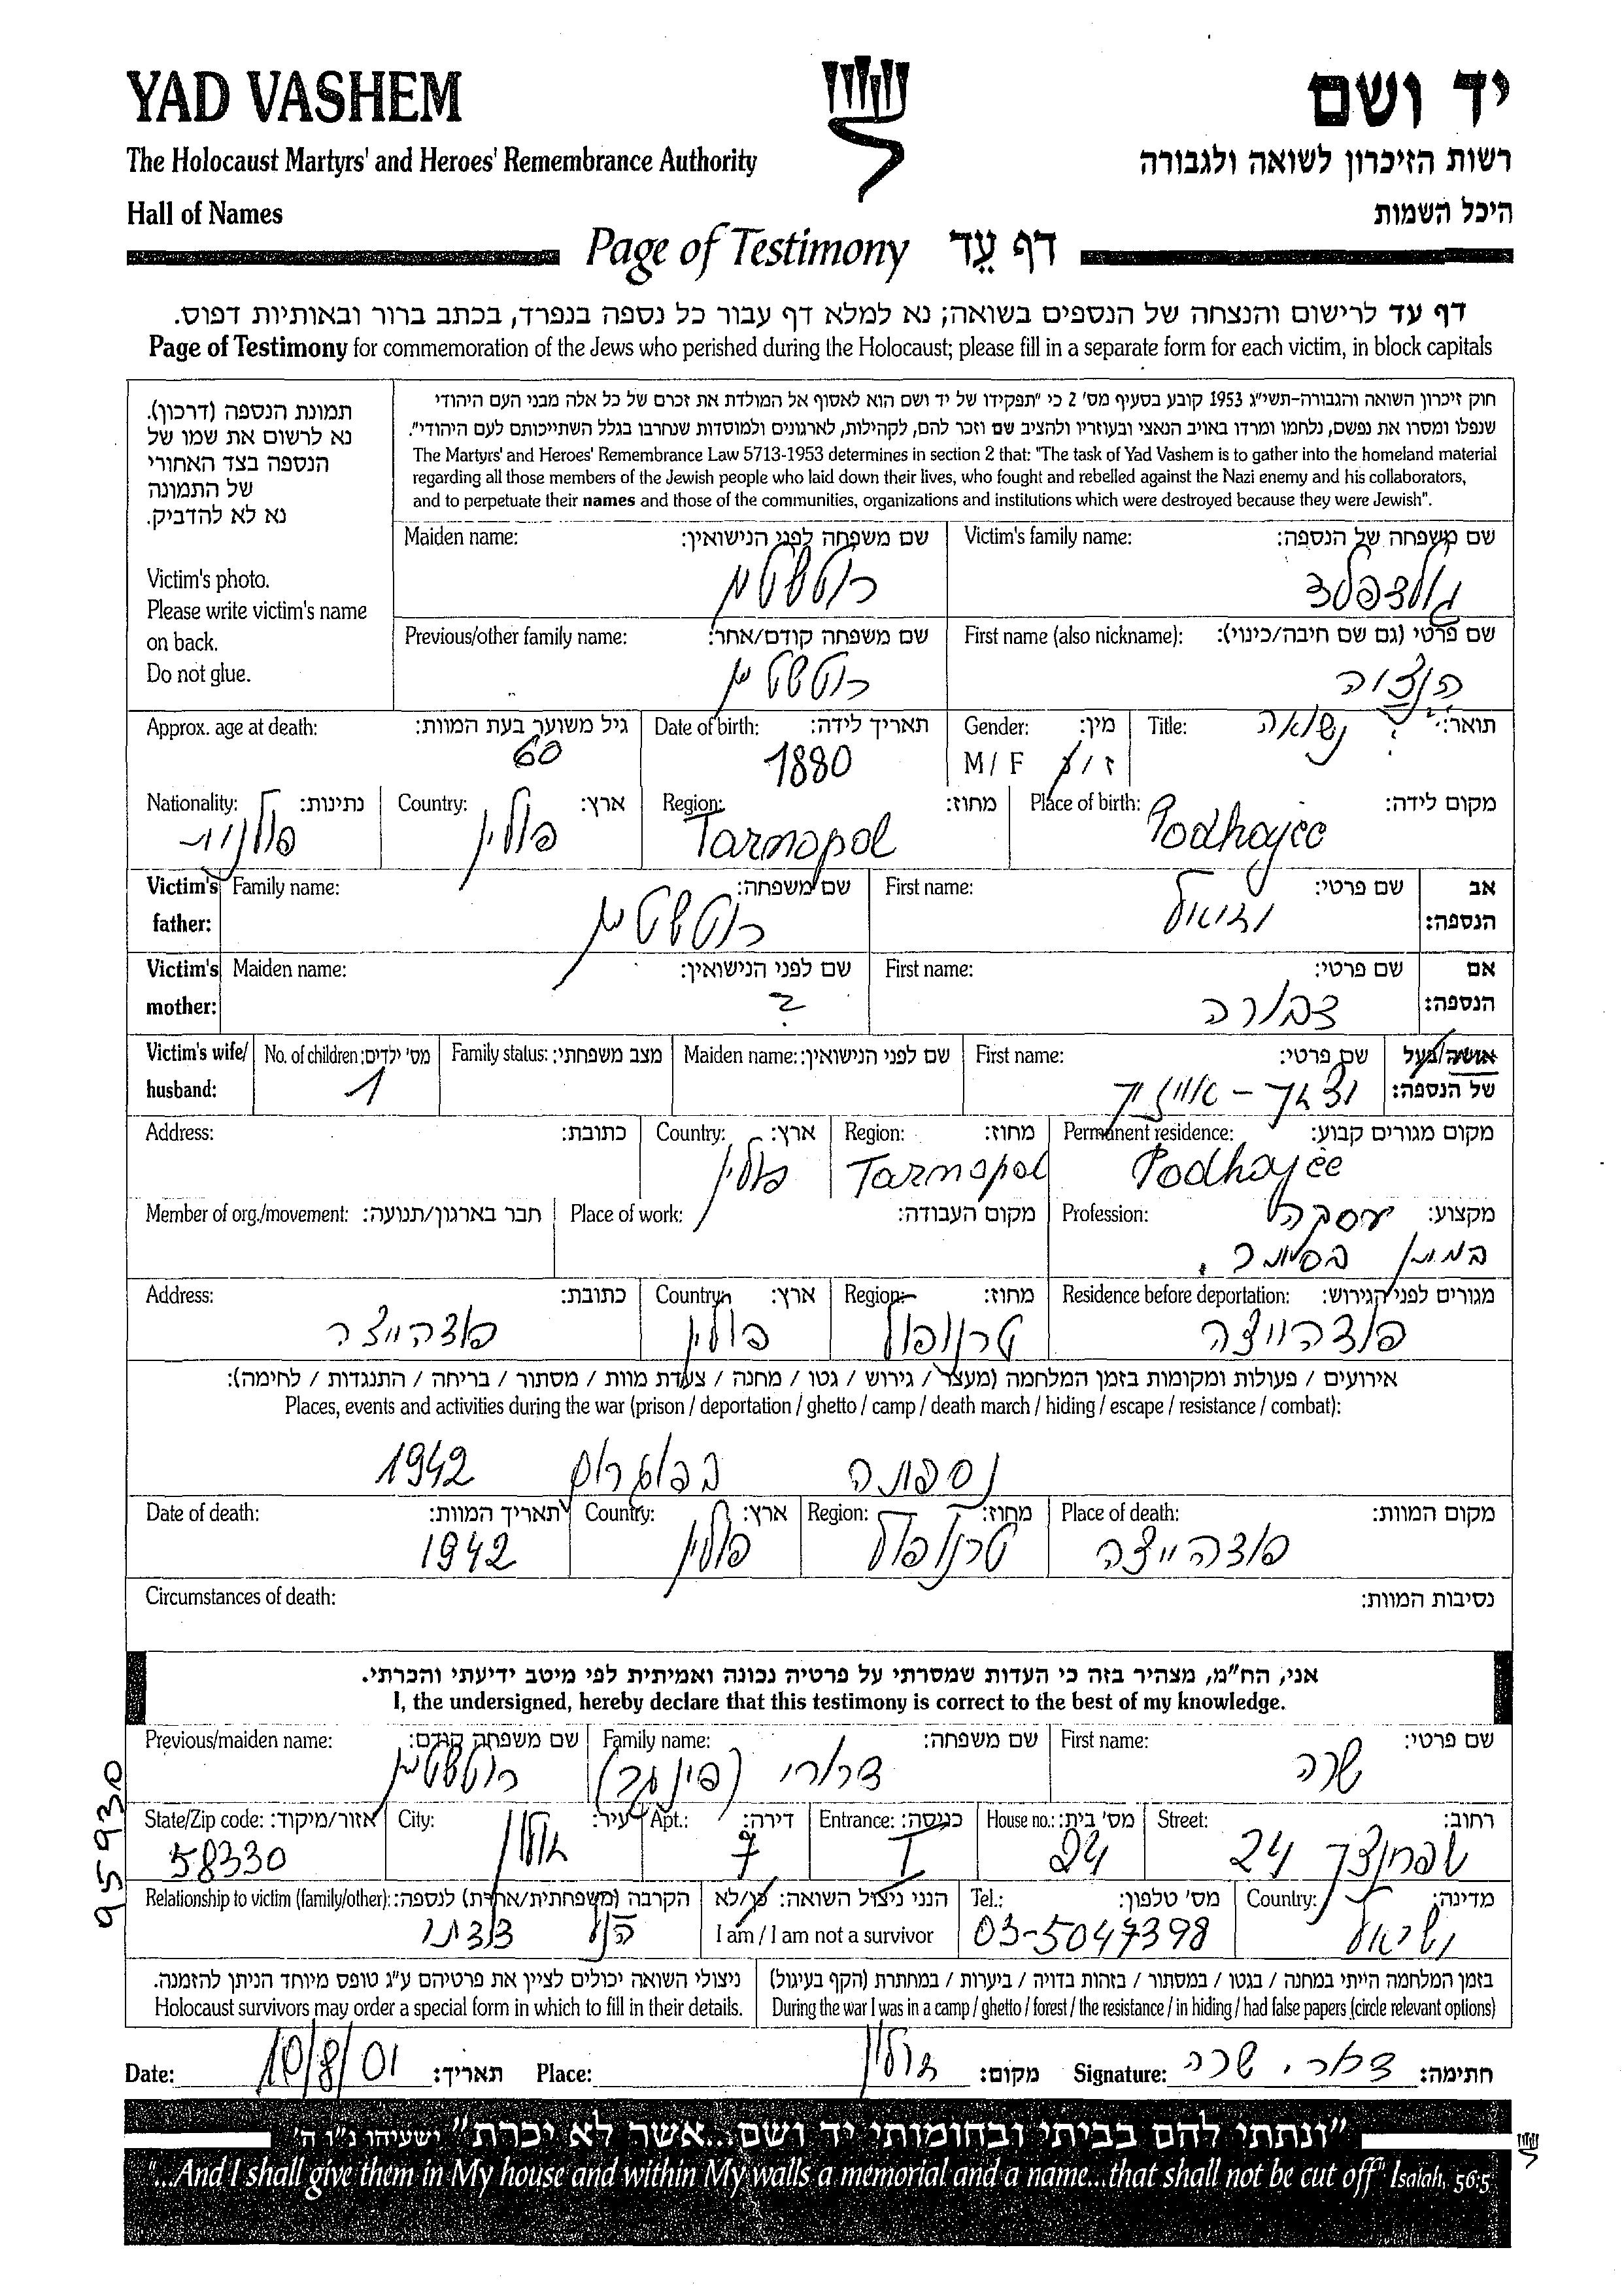 YAD VASHEM
יד ושם
The Holocaust Martyrs' and Heroes' Remembrance Authority
רשות הזיכרון לשואה ולגבורה
Hall of Names
היכל השמות
Page of Testimony דף עֵד
דף עד לרישום והנצחה של הנספים בשואה; נא למלא דף עבור כל נספה בנפרד, בכתב ברור ובאותיות דפוס.
Page of Testimony for commemoration of the Jews who perished during the Holocaust; please fill in a separate form for each victim, in block capitals
תמונת הנספה (דרכון).
נא לרשום את שמו של
הנספה בצד האחורי
של התמונה
נא לא להדביק.
Victim's photo.
Please write victim's name
on back.
Do not glue.
חוק זיכרון השואה והגבורה-תשי"ג 1953 קובע בסעיף מס' 2 כי "תפקידו של יד ושם הוא לאסוף אל המולדת את זכרם של כל אלה מבני העם היהודי
שנפלו ומסרו את נפשם, נלחמו ומרדו באויב הנאצי ובעוזריו ולהציב שם וזכר להם, לקהילות, לארגונים ולמוסדות שנחרבו בגלל השתייכותם לעם היהודי".
The Martyrs' and Heroes' Remembrance Law 5713-1953 determines in section 2 that: "The task of Yad Vashem is to gather into the homeland material
regarding all those members of the Jewish people who laid down their lives, who fought and rebelled against the Nazi enemy and his collaborators,
and to perpetuate their names and those of the communities, organizations and institutions which were destroyed because they were Jewish".
Victim's family name: שם משפחה של הנספה:
גולדפלד
Maiden name: שם משפחה לפני הנישואין:
רוטשטין
First name (also nickname): שם פרטי (גם שם חיבה/כינוי):
Previous/other family name: שם משפחה קודם/אחר:
רוטשטין
Title: תואר:
נשואה
Gender: מין:
M / F ז / נ
Date of birth: תאריך לידה:
1880
Approx. age at death: גיל משוער בעת המוות:
60
Place of birth: מקום לידה:
Podhajce
Region: מחוז:
Tarnopol
Country: ארץ:
פולין
Nationality: נתינות:
פולנית
Victim's father: אב הנספה:
First name: שם פרטי:
Family name: שם משפחה:
רוטשטין
Victim's mother: אם הנספה:
First name: שם פרטי:
דבורה
Maiden name: שם לפני הנישואין:
?
Victim's wife/ husband: אשה/בעל של הנספה:
First name: שם פרטי:
Maiden name: שם לפני הנישואין:
Family status: מצב משפחתי:
No. of children: מס' ילדים:
1
Permanent residence: מקום מגורים קבוע:
Podhajce
Region: מחוז:
Tarnopol
Country: ארץ:
פולין
Address: כתובת:
Profession: מקצוע:
עסקה
Place of work: מקום העבודה:
Member of org./movement: חבר בארגון/תנועה:
Residence before deportation: מגורים לפני הגירוש:
פודהייצה
Region: מחוז:
טרנופול
Country: ארץ:
פולין
Address: כתובת:
פודהייצה
אירועים / פעולות ומקומות בזמן המלחמה (מעצר / גירוש / גטו / מחנה / צעדת מוות / מסתור / בריחה / התנגדות / לחימה):
Places, events and activities during the war (prison / deportation / ghetto / camp / death march / hiding / escape / resistance / combat):
נספתה בפוגרום 1942
Place of death: מקום המוות:
פודהייצה
Region: מחוז:
טרנופול
Country: ארץ:
פולין
Date of death: תאריך המוות:
1942
Circumstances of death: נסיבות המוות:
אני, הח"מ, מצהיר בזה כי העדות שמסרתי על פרטיה נכונה ואמיתית לפי מיטב ידיעתי והכרתי.
I, the undersigned, hereby declare that this testimony is correct to the best of my knowledge.
First name: שם פרטי:
שרה
Family name: שם משפחה:
Previous/maiden name: שם משפחה קודם:
רוטשטין
Street: רחוב:
24
House no.: מס' בית:
24
Entrance: כניסה:
I
Apt.: דירה:
7
City: עיר:
חולון
State/Zip code: אזור/מיקוד:
58330
Country: מדינה:
ישראל
Tel.: מס' טלפון:
03-5047398
הנני ניצול השואה: כן/לא
I am / I am not a survivor
Relationship to victim (family/other): הקרבה (משפחתית/אחרת) לנספה:
דודתי
בזמן המלחמה הייתי במחנה / בגטו / במסתור / בזהות בדויה / ביערות / במחתרת (הקף בעיגול)
During the war I was in a camp / ghetto / forest / the resistance / in hiding / had false papers (circle relevant options)
ניצולי השואה יכולים לציין את פרטיהם ע"ג טופס מיוחד הניתן להזמנה.
Holocaust survivors may order a special form in which to fill in their details.
Date: 10/8/01 תאריך: Place: חולון מקום: Signature: שרה חתימה:
"ונתתי להם בביתי ובחומותי יד ושם...אשר לא יכרת" ישעיהו נ"ו ה'
"...And I shall give them in My house and within My walls a memorial and a name...that shall not be cut off" Isaiah, 56:5
95930